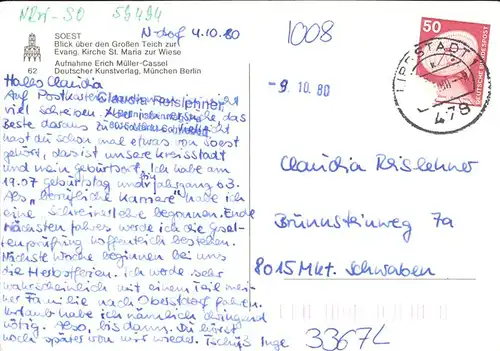 NRW-SO 59494
N-dorf 4.10.80
1008
SOEST
Blick über den Großen Teich zur
Evang. Kirche St. Maria zur Wiese
Aufnahme Erich Müller-Cassel
62 Deutscher Kunstverlag, München Berlin
50
DEUTSCHE BUNDESPOST
LIPPSTADT
478
-9. 10. 80
Hallo Claudia
Auf Postkarten kann man nicht
viel schreiben. Aber ich versuche, das
Beste daraus zu machen. Vielleicht
hast du schon mal etwas von Soest
gehört, das ist unsere Kreisstadt
und mein Geburtsort. Ich habe am
19.07 Geburtstag und bin Jahrgang 63.
Als "berufliche Karriere" habe ich
eine Schreinerlehre begonnen. Ende
nächsten Jahres werde ich die Gesel-
lenprüfung hoffentlich bestehen.
Nächste Woche beginnen bei uns
die Herbstferien. Ich werde sehr
wahrscheinlich mit einem Teil mei-
ner Familie nach Oberstdorf fahren.
Urlaub habe ich nämlich dringend
nötig. Also, bis dann. Du hörst
noch später von mir wieder. Tschüß Inge
Claudia Reislehner
Brunnsteinweg 7a
8015 Mkt. Schwaben
3367L